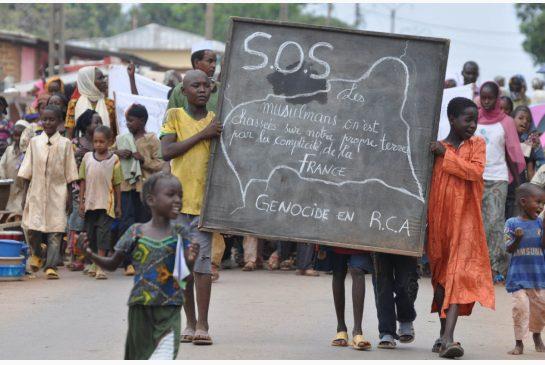 S.O.S
Les
musulmans on est
chassés sur notre propre terre
par la complicité de la
FRANCE
GENOCIDE EN R.C.A
SAMSUNG